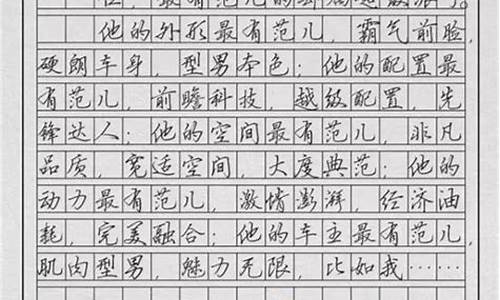 他的外形最有范儿，霸气前脸，
硬朗车身，型男本色；他的配置最
有范儿，前瞻科技，越级配置，先
锋达人；他的空间最有范儿，非凡
品质，宽适空间，大度典范；他的
动力最有范儿，激情澎湃，经济油
耗，完美融合；他的车主最有范儿，
肌肉型男，魅力无限，比如我……